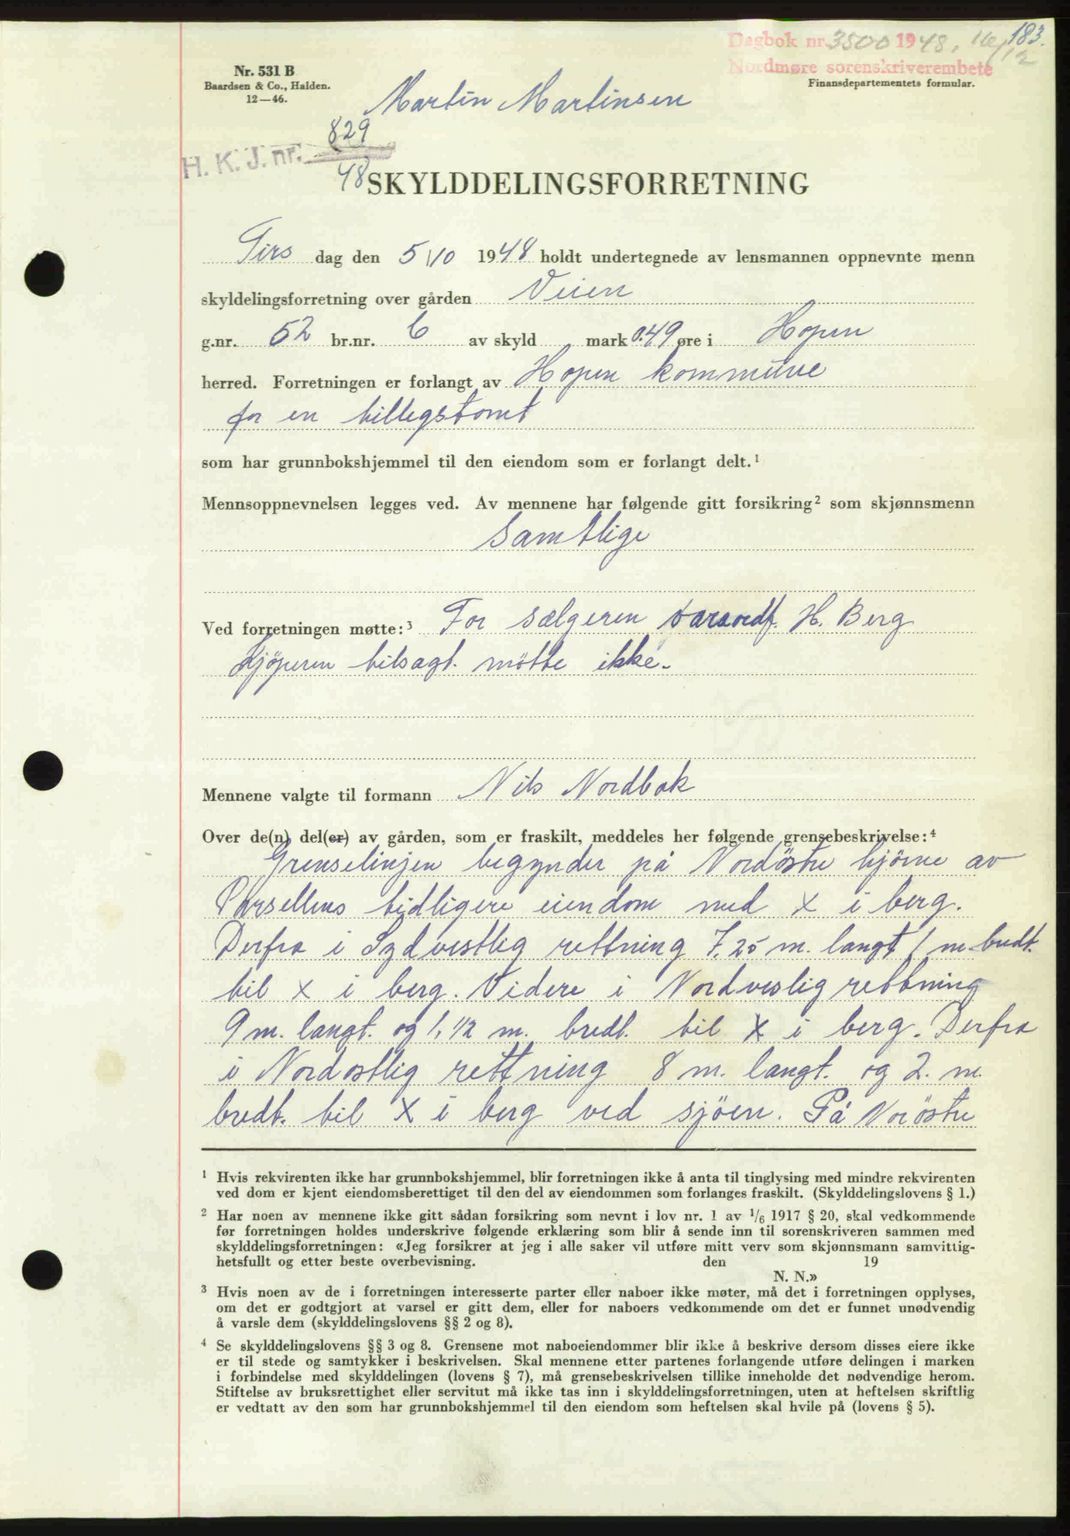 183.
Dagbok nr. 3500 1948, 16/12
Nordmøre sorenskriverembete
Nr. 531 B
Baardsen & Co., Halden.
12—46.
Finansdepartementets formular.
Martin Martinsen
H. K. J. nr. 829
48
SKYLDDELINGSFORRETNING
Tirs dag den 5/10 1948 holdt undertegnede av lensmannen oppnevnte menn
skyldelingsforretning over gården Veien
g.nr. 52 br.nr. 6 av skyld mark 0.49 øre i Hopen
herred. Forretningen er forlangt av Hopen kommune
for en tillegstomt
som har grunnbokshjemmel til den eiendom som er forlangt delt.1
Mennsoppnevnelsen legges ved. Av mennene har følgende gitt forsikring2 som skjønnsmenn
Samtlige
Ved forretningen møtte:3 For sælgeren varaordf. H. Berg
Kjöperen tilsagt. mötte ikke.
Mennene valgte til formann Nils Nordbak
Over de(n) del(er) av gården, som er fraskilt, meddeles her følgende grensebeskrivelse:4
Grenselinjen begynder på Nordöstre hjörne av
Parsellens tidligere eiendom med x i berg.
Derfra i Sydvestlig rettning 7,25 m. langt 1 m. bredt.
til x i berg. Videre i Nordveslig rettning
9 m. langt. og 1,1/2 m. bredt. til x i berg. Derfra
i Nordostlig rettning 8 m. langt. og 2. m.
bredt. til x i berg ved sjöen. På Noröstre
1 Hvis rekvirenten ikke har grunnbokshjemmel, blir forretningen ikke å anta til tinglysing med mindre rekvirenten
ved dom er kjent eiendomsberettiget til den del av eiendommen som forlanges fraskilt. (Skylddelingslovens § 1.)
2 Har noen av mennene ikke gitt sådan forsikring som nevnt i lov nr. 1 av 1/6 1917 § 20, skal vedkommende
før forretningen holdes underskrive følgende erklæring som blir å sende inn til sorenskriveren sammen med
skylddelingsforretningen: «Jeg forsikrer at jeg i alle saker vil utføre mitt verv som skjønnsmann samvittig-
hetsfullt og etter beste overbevisning. den 19
N. N.»
3 Hvis noen av de i forretningen interesserte parter eller naboer ikke møter, må det i forretningen opplyses,
om det er godtgjort at varsel er gitt dem, eller for naboers vedkommende om det er funnet unødvendig
å varsle dem (skylddelingslovens §§ 2 og 8).
4 Se skylddelingslovens §§ 3 og 8. Grensene mot naboeiendommer blir ikke å beskrive dersom disses eiere ikke
er til stede og samtykker i beskrivelsen. Skal mennene etter partenes forlangende utføre delingen i marken
i forbindelse med skylddelingen (lovens § 7), må grensebeskrivelsen tillike inneholde det nødvendige herom.
Stiftelse av bruksrettighet eller servitut må ikke tas inn i skylddelingsforretningen, uten at heftelsen skriftlig
er vedtatt av den som har grunnbokshjemmel til den eiendom som heftelsen skal hvile på (lovens § 5).